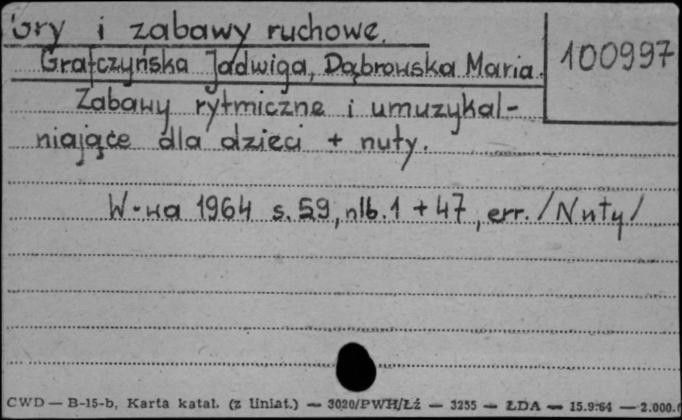 i zabawy ruchowe.
Gratczyńska Jadwiga, Dąbrowska Maria.
100997
Zabawy rytmiczne i umuzykal-
niające dla dzieci + nuty.
W-wa 1964 s. 59, nlb. 1 + 47, err. /Nuty/
CWD — B-15-b, Karta katal. (z liniat.) — 3020/PWH/Łź — 3255 — ŁDA — 15.9.64 — 2.000.